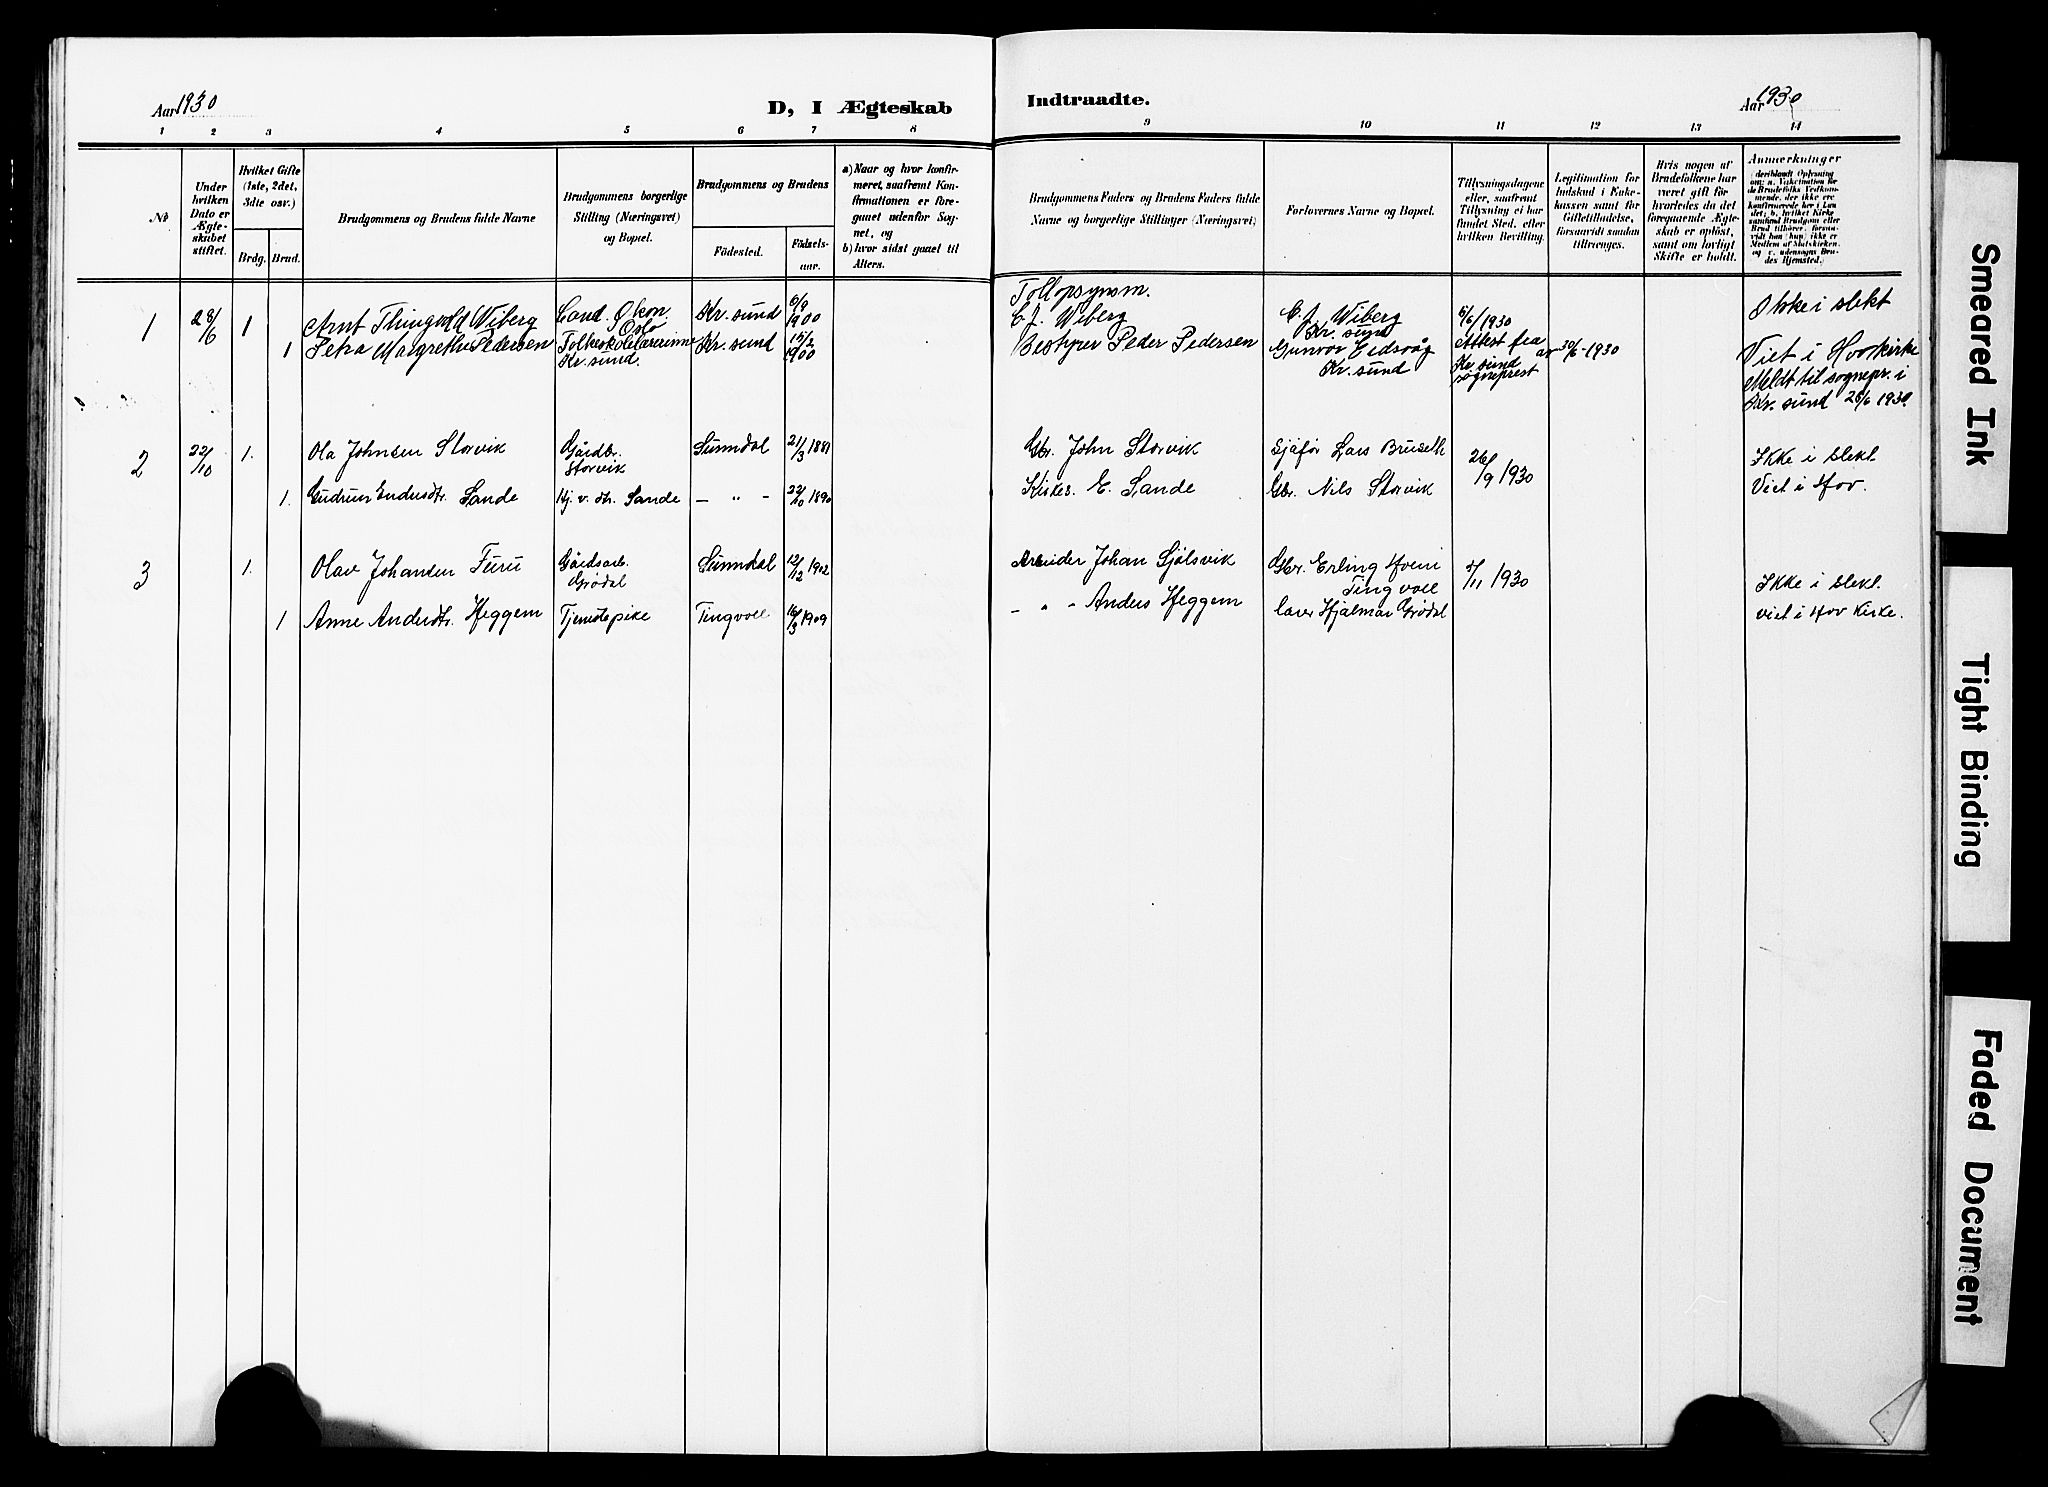 Aar 1930
D, I Ægteskab
Indtraadte.
Aar 1930
1 2 3 4 5 6 7 8 9 10 11 12 13 14
No
Under
hvilken
Dato er
Ægte-
skabet
stiftet.
Hvilket Gifte
(1ste, 2det,
3die osv.)
Brdg. Brud.
Brudgommens og Brudens fulde Navne
Brudgommens borgerlige
Stilling (Næringsvei)
og Bopæl.
Brudgommens og Brudens
Födested.
Födsels-
aar.
a) Naar og hvor konfir-
meret, saafremt Kon-
firmationen er fore-
gaaet udenfor Sog-
net, og
b) hvor sidst gaaet til
Alters.
Brudgommens Faders og Brudens Faders fulde
Navne og borgerlige Stillinger (Næringsvei)
Forlovernes Navne og Bopæl.
Tillysningsdagene
eller, saafremt
Tillysning ei har
fundet Sted, efter
hvilken Bevilling.
Legitimation for
Indskud i Enke-
kassen samt for
Giftetilladelse,
forsaavidt saadan
tiltrænges.
Hvis nogen af
Brudefolkene har
været gift før,
hvorledes da det
foregaaende Ægte-
skab er opløst,
samt om lovligt
Skifte er holdt.
Anmerkninger
(deriblandt Oplysning
om: a. Vakcination for
de Brudefolks Vedkom-
mende, der ikke ere
konfirmerede her i Lan-
det; b. hvilket Kirke-
samfund Brudgom eller
Brud tilhører, forsaa-
vidt han (hun) ikke er
Medlem af Statskirken,
og c. udensogns Bru-
des Hjemsted.)
1 28/6 1 Arnt Thingvold Wiberg Cand. Økon. Oslo Kr. sund 6/9 1900 Tollopsynsm. C. J. Wiberg C. J. Wiberg Kr. sund 6/6 1930 Ikke i slekt
1 Petra Margrethe Pedersen Folkeskolelærerinne Kr. sund. Kr. sund 15/2 1900 Bestyrer Peder Pedersen Gunvor Eidsvåg Kr. sund Attest fra Kr. sund sogneprest av 30/6-1930 Viet i Hov kirke
Meldt til sognepr. i
Kr. sund 28/6 1930.
2 22/10 1. Ola Johnsen Storvik Gårdbr. Storvik Sunndal 21/3 1881 Gbr. John Storvik Sjåfør Lars Bruseth 26/9 1930 Ikke i slekt.
1. Gudrun Endresdtr. Sande Hj. v. dtr. Sande — " — 22/10 1890 Kirkes. E. Sande Gbr. Nils Storvik Viet i Hov.
3 1. Olav Johansen Furu Gårdsarb. Grødal Sunndal 12/12 1902 Arbeider Johan Sjølsvik Gbr. Erling Hoem Tingvoll 5/11 1930 Ikke i slekt.
1 Anne Andersdtr. Heggem Tjenestepike Tingvoll 16/3 1909 — " — Anders Heggem Lærer Hjalmar Grødal viet i Hov kirke.
Smeared Ink
Tight Binding
Faded Document